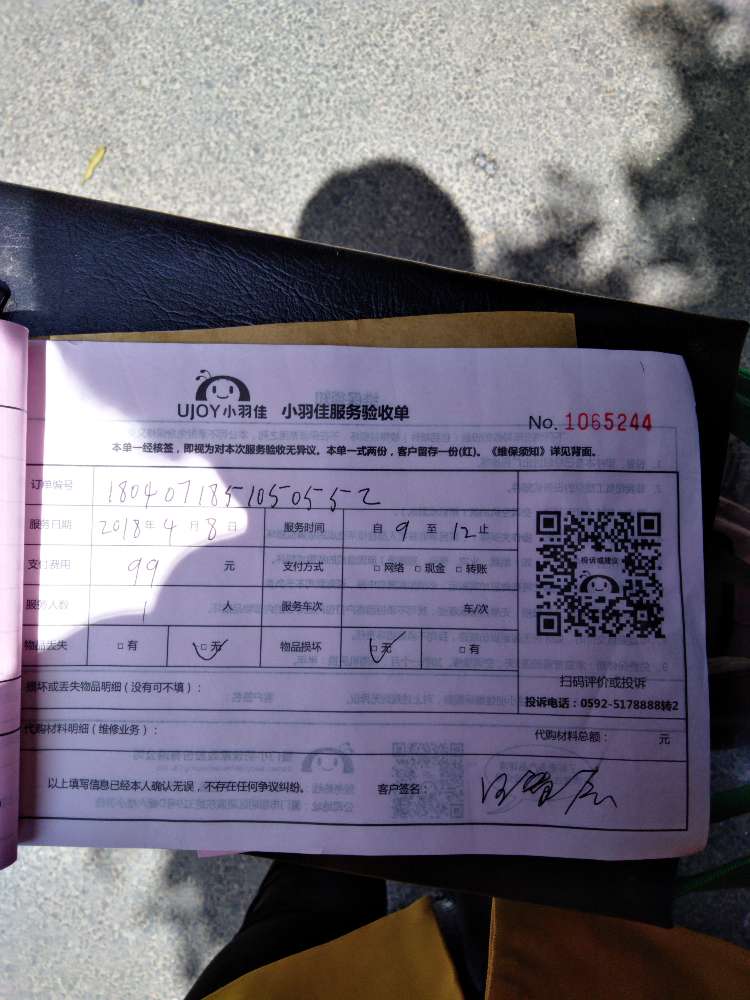 UJOY小羽佳 小羽佳服务验收单
No. 1065244
本单一经核签，即视为对本次服务验收无异议。本单一式两份，客户留存一份(红)。《维保须知》详见背面。
订单编号 18040718510505552
服务日期 2018年4月8日 服务时间 自9至12止
支付费用 99 元 支付方式 □网络 □现金 □转账
服务人数 1 人 服务车次 车/次
物品丢失 □有 □无 物品损坏 □无 □有
投诉或建议
扫码评价或投诉
投诉电话：0592-5178888转2
损坏或丢失物品明细（没有可不填）：
代购材料明细（维修业务）：
代购材料总额： 元
以上填写信息已经本人确认无误，不存在任何争议纠纷。 客户签名：